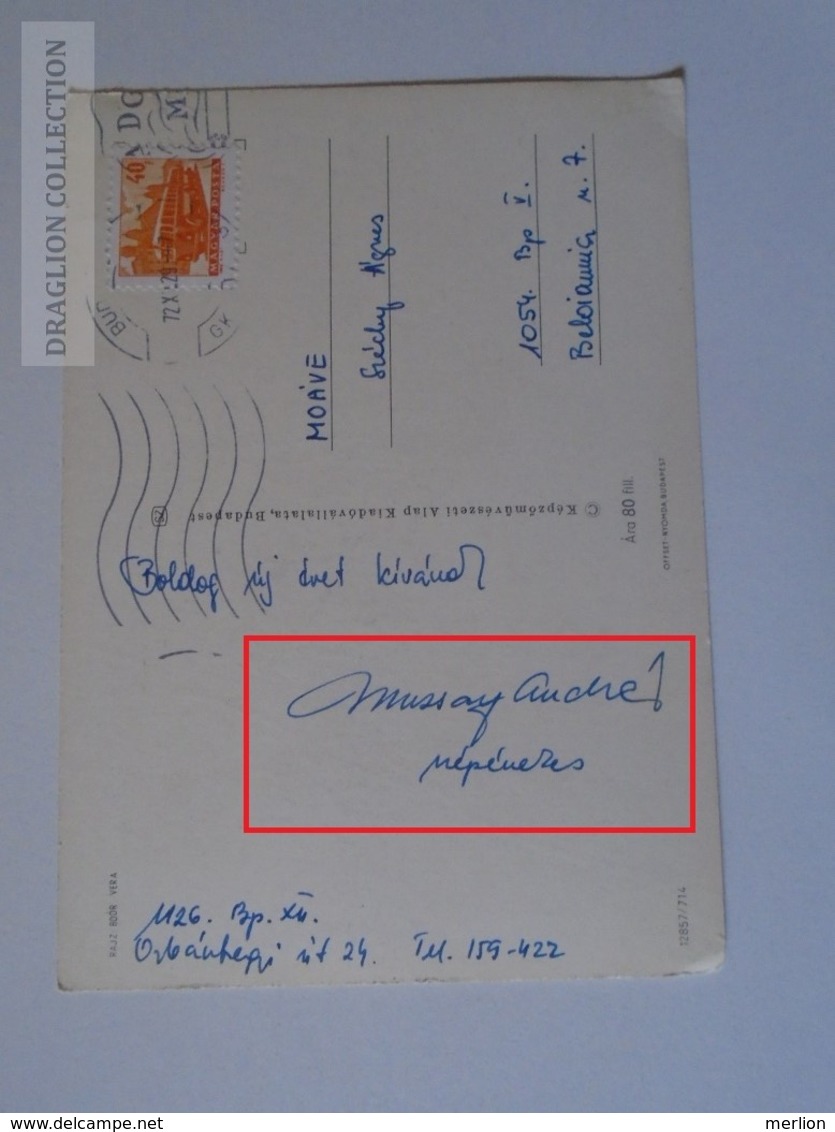 DRAGLION COLLECTION
40
MAGYAR POSTA
72 X 29
MOÁVE
Széchy Ágnes
1054. Bp V.
Beloiannisz u. 7.
© Képzőművészeti Alap Kiadóvállalata, Budapest
Ára 80 fill.
OFFSET-NYOMDA, BUDAPEST
Boldog új évet kíván
Mussay Andrea
népénekes
RAJZ: BOÓR VERA
1126. Bp. XII.
Orbánhegyi út 24. Tel. 159-422
12857/714
www.delcampe.net
merlion